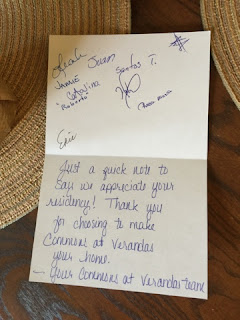 Susan
Santos T.
Jamie
Catalina
"Roberto"
Eric
Just a quick note to
say we appreciate your
residency! Thank you
for choosing to make
Commons at Verandas
your home.
~ Your Commons at Verandas team